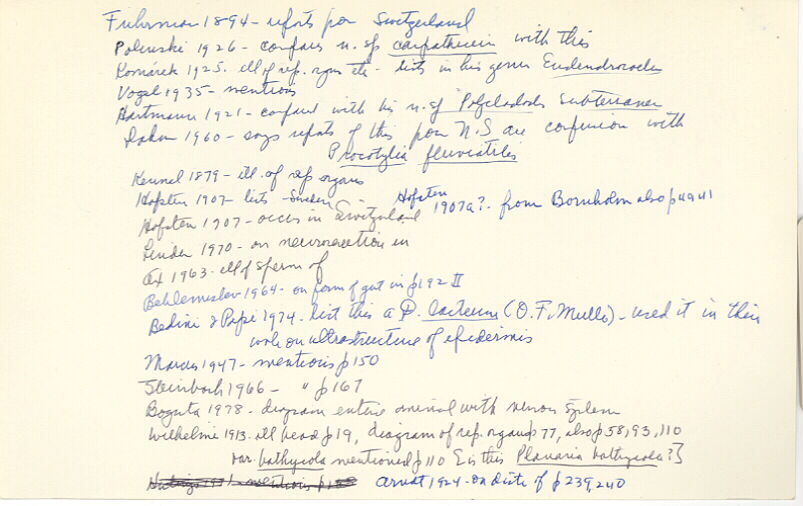 Fuhrmann 1894 - reports from Switzerland
Polinski 1926 - compares n. sp carpathicum with this
Komárek 1925. ill of rep. orgns etc - lists in his genus Eudendrocoelum
Vogel 1935 - mentions
Bartmann 1921 - compared with his n. sp Polycladodes subterranea
Dahm 1960 - says reports of this from N.S are confusion with
Procotylia fluviatilis
Kennel 1879 - ill. of rep organs
Hofsten 1907 - lists - Sweden - Hofsten 1907a?. from Bornholm also p 49 41
Hofsten 1907 - occurs in Switzerland
Linder 1970 - on neurosecretion in
Ax 1963 - ill of sperm of
Beklemishev 1964 - on form of gut in p 192 II
Bedini & Papi 1974 - list this a D. lacteum (O.F. Muller) - used it in their
work on ultrastructure of epidermis
Marcus 1947 - mentions p 150
Steinbach 1966 - " p 167
Boguta 1978 - diagram entire animal with nervous system
Wilhelmi 1913. ill head p 19, diagram of rep. organ p 77, also p 58, 93, 110
var. bathycola mentioned p 110 [is this Planaria bathycola?]
Arndt 1924 - on distr of p 239, 240